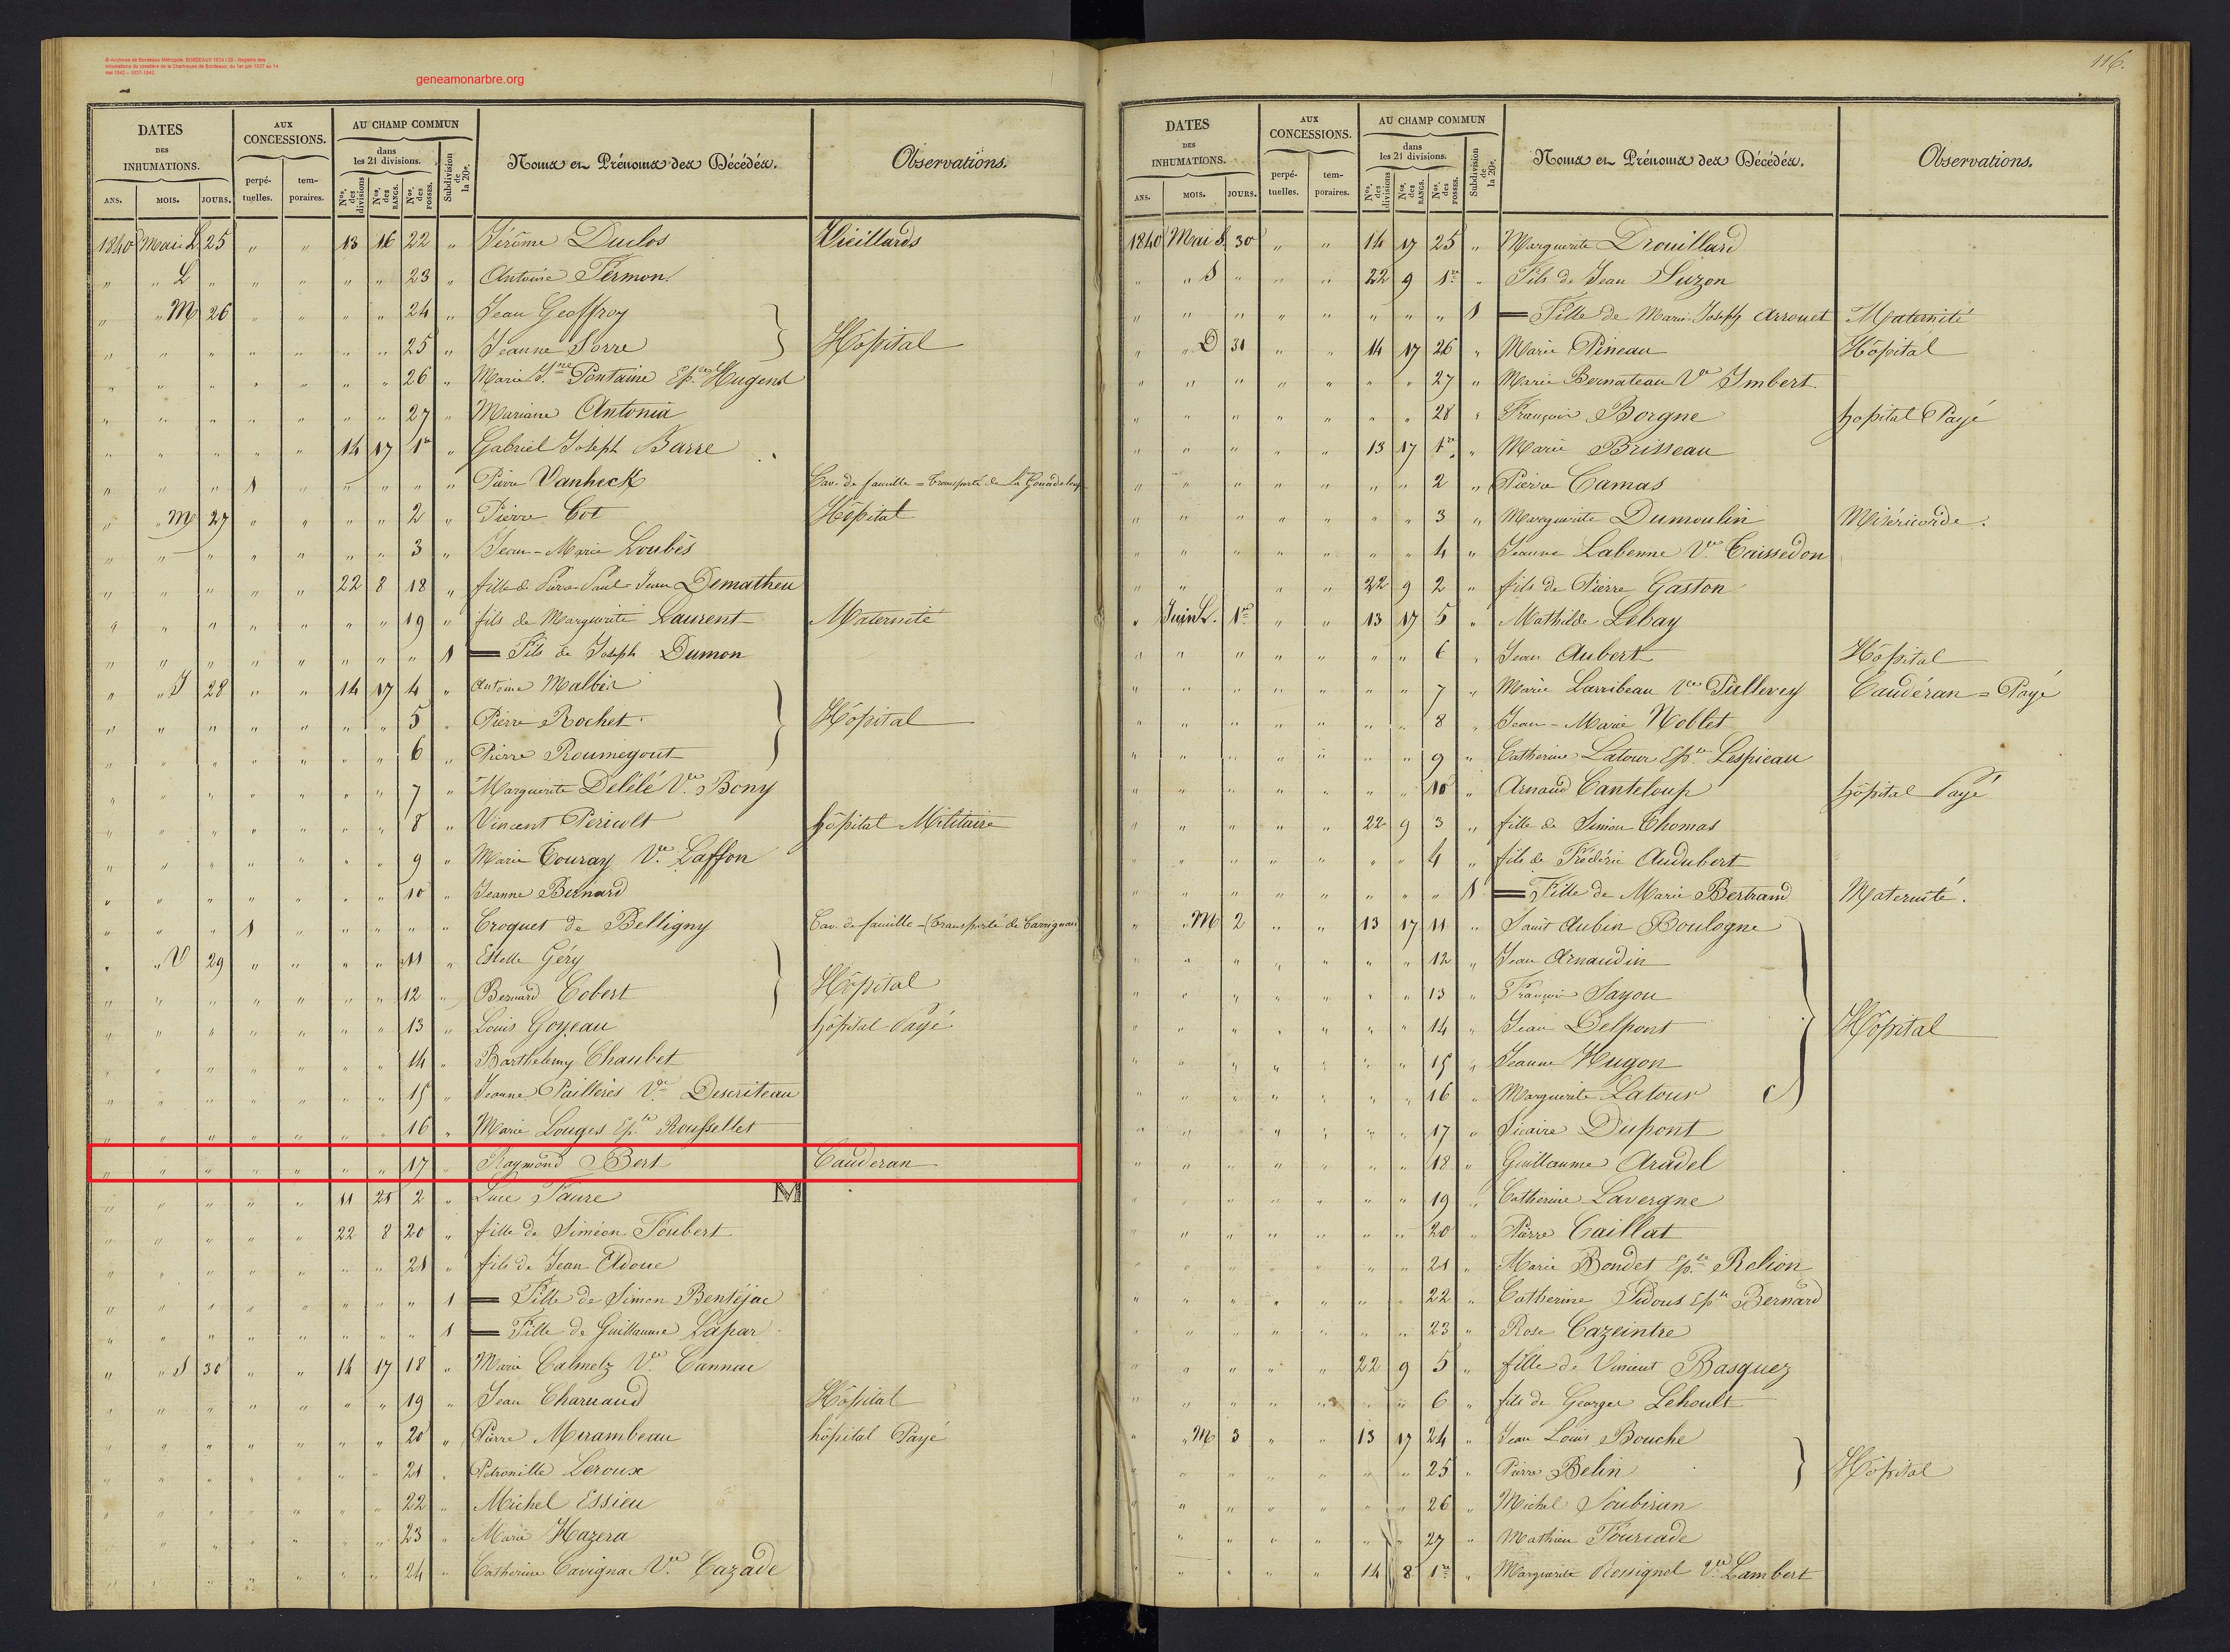 © Archives de Bordeaux Métropole, BORDEAUX 1634 I 28 - Registre des
inhumations du cimetière de la Chartreuse de Bordeaux, du 1er juin 1837 au 14
mai 1842 – 1837-1842
geneamonarbre.org
DATES DES INHUMATIONS. AUX CONCESSIONS. AU CHAMP COMMUN Noms et Prénoms des Décédés. Observations.
dans les 21 divisions. Subdivision de la 20e.
ANS. MOIS. JOURS. perpétuelles. temporaires. Nos. des divisions Nos. des RANGS. Nos. des FOSSES.
1840 Mai L 25 " " 13 16 22 " Jérôme Duclos Vieillards
" " L " " " " " 23 " Antoine Fermon
" " M 26 " " " " 24 " Jean Geoffroy
" " " " " " " 25 " Jeanne Sorre Hôpital
" " " " " " " 26 " Marie Jne Fontaine Epse Hugent
" " " " " " " 27 " Mariane Antonia
" " " " " 14 17 1er " Gabriel Joseph Barre
" " " 1 " " " " " Pierre Vanheck Cav. de famille = transporté de la
" " M 27 " " " " 2 " Pierre Cot Hôpital
" " " " " " " 3 " Jean-Marie Loubès
" " " " " 22 8 18 " fille de Pierre Paul Jean Dematheu
" " " " " " " 19 " fils de Marguerite Laurent Maternité
" " " " " " " " 1 = Fils de Joseph Dumon
" " J 28 " " 14 17 4 " Antoine
" " " " " " " 5 " Pierre Rochet Hôpital
" " " " " " " 6 " Pierre Roumegout
" " " " " " " 7 " Marguerite Delélé Ve Bony
" " " " " " " 8 " Vincent Hôpital Militaire
" " " " " " " 9 " Marie Touray Ve Laffon
" " " " " " " 10 " Jeanne Bernard
" " " 1 " " " " " Croquet de Belligny Cav. de famille = (transporté de
" " V 29 " " " " 11 " Estelle Géry
" " " " " " " 12 " Bernard Cobert Hôpital
" " " " " " " 13 " Louis Goyeau hôpital Payé
" " " " " " " 14 " Barthelemy Chaubet
" " " " " " " 15 " Jeanne Paillères Ve Descriteau
" " " " " " " 16 " Marie Louges Epse Rousselet
" " " " " " " 17 " Raymond Bert Cauderan
" " " " " 11 21 2 " Luce Faure M
" " " " " 22 8 20 " fille de Siméon Joubert
" " " " " " " 21 " fils de Jean Edoue
" " " " " " " " 1 = Fille de Simon Benséjac
" " " " " " " " 1 = Fille de Guillaume Lapar
" " S 30 " " 14 17 18 " Marie Calmelz Ve Cannac
" " " " " " " 19 " Jean Charuaud Hôpital
" " " " " " " 20 " Pierre Mirambeau hôpital Payé
" " " " " " " 21 " Petronille Leroux
" " " " " " " 22 " Michel Essieu
" " " " " " " 23 " Marie Hazera
" " " " " " " 24 " Catherine Cavignac Ve Cazade
116.
DATES DES INHUMATIONS. AUX CONCESSIONS. AU CHAMP COMMUN Noms et Prénoms des Décédés. Observations.
dans les 21 divisions. Subdivision de la 20e.
ANS. MOIS. JOURS. perpétuelles. temporaires. Nos. des divisions Nos. des RANGS. Nos. des FOSSES.
1840 Mai S 30 " " 14 17 25 " Marguerite Drouillard
" " S " " " 22 9 1er " Fils de Jean Luzon
" " " " " " " " 1 = Fille de Marie Joseph Arrouet Maternité
" " D 31 " " 14 17 26 " Marie Pineau Hôpital
" " " " " " " 27 " Marie Bernateau Ve Imbert
" " " " " " " 28 " François Borgne hopital Payé
" " " " " 13 17 1er " Marie Brisseau
" " " " " " " 2 " Pierre Camas
" " " " " " " 3 " Marguerite Dumoulin Miséricorde.
" " " " " " " 4 " Jeanne Labenne Ve Caissedon
" " " " " 22 9 2 " fils de Pierre Gaston
" Juin L. 1er " " 13 17 5 " Mathilde Lebay
" " " " " " " 6 " Jean Aubert Hôpital
" " " " " " " 7 " Marie Larribeau Ve Pallevey Caudéran = Payé
" " " " " " " 8 " Jean-Marie Noblet
" " " " " " " 9 " Catherine Latour Epse Lespieau
" " " " " " " 10 " Arnaud Canteloup hôpital Payé
" " " " " 22 9 3 " fille de Simon Thomas
" " " " " " " 4 " fils de Frédéric Audubert
" " " " " " " " 1 = Fille de Marie Bertrand Maternité.
" " M 2 " " 13 17 11 " Saint Aubin Boulogne
" " " " " " " 12 " Jean Arnaudin
" " " " " " " 13 " François Sayou
" " " " " " " 14 " Jean Delpont Hôpital
" " " " " " " 15 " Jeanne Hugon
" " " " " " " 16 " Marguerite Latour
" " " " " " " 17 " Sicaire Dupont
" " " " " " " 18 " Guillaume Aradel
" " " " " " " 19 " Catherine Lavergne
" " " " " " " 20 " Pierre Caillat
" " " " " " " 21 " Marie Bondet Epse Relion
" " " " " " " 22 " Catherine Pidous Epse Bernard
" " " " " " " 23 " Rose Cazeintre
" " " " " 22 9 5 " fille de Vincent Basquez
" " " " " " " 6 " fils de Georges Lehoult
" " M 3 " " 13 17 24 " Jean Louis Bouche
" " " " " " " 25 " Pierre Belin Hôpital
" " " " " " " 26 " Michel Soubiran
" " " " " " " 27 " Mathieu Fourcade
" " " " " 14 8 1er " Marguerite Rossignol Ve Lambert